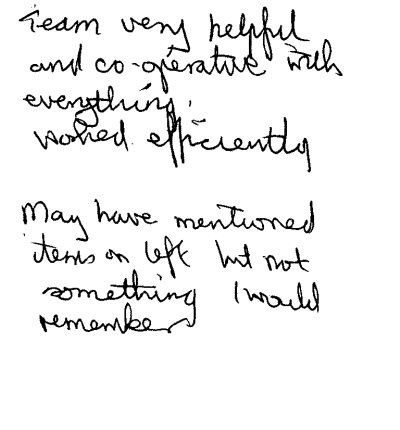 Team very helpful
and co-operative with
everything.
worked efficiently
May have mentioned
items on left but not
something I would
remember